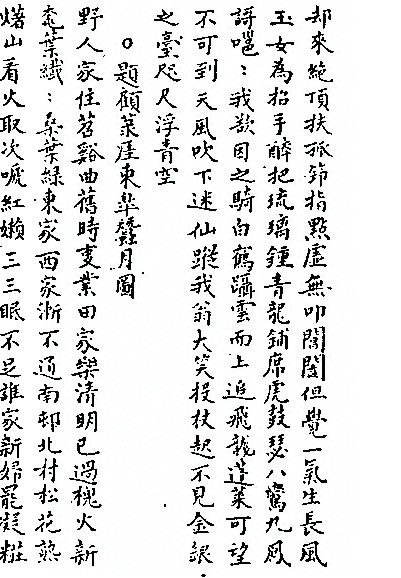 却來絶頂扶孤筇指點虛無叩閶闔但覺一氣生長風
玉女為招手醉把琉璃鍾青龍鋪席虎鼓瑟八鸞九鳳
諤嗈〻我欲因之騎白鶴躡雲而上追飛龍蓬萊可望
不可到天風吹下迷仙蹤我翁大笑投杖起不見金銀
之臺咫尺浮青空
○題顧萊厓東皐蠶月圖
野人家住苕谿曲舊時變業田家樂清明已過槐火新
葉纖〻桑葉綠東家西家漸不通南邨北村松花熟
山看火取次嗁紅嬾三三眠不足誰家新婦罷凝糚